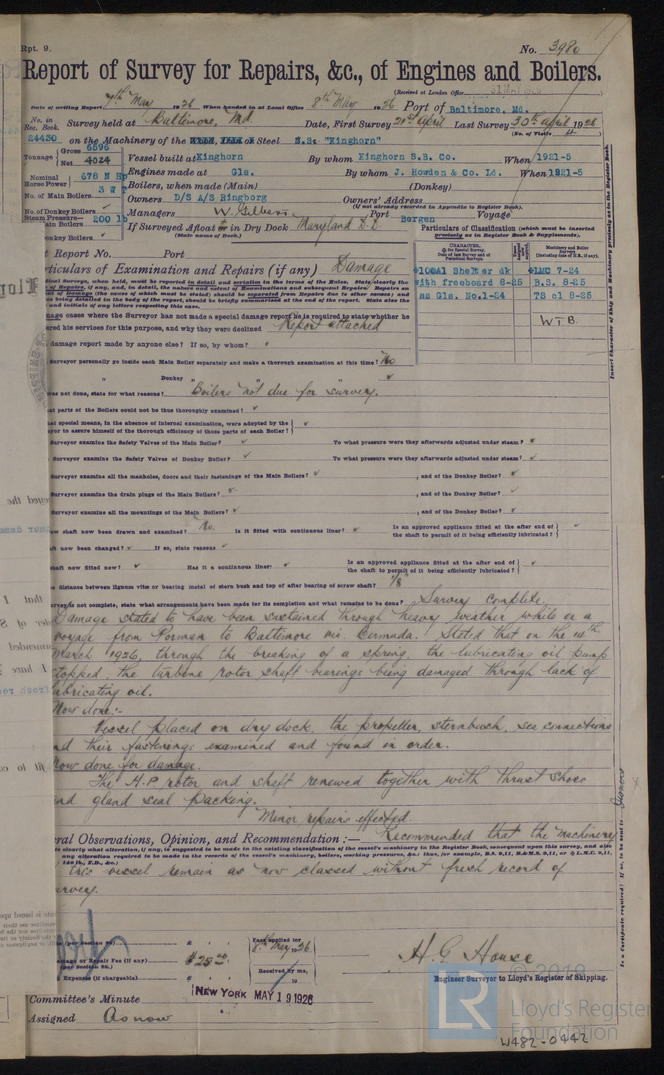 Rpt. 9.
No. 3980
Report of Survey for Repairs, &c., of Engines and Boilers.
(Received at London Office 31 MAY 1926
Date of writing Report 7th May 1926 When handed in at Local Office 8th May 1926 Port of Baltimore, Md.
No. in Reg. Book. Survey held at Baltimore, Md Date, First Survey 21st April Last Survey 30th April 1926
(No. of Visits 4)
24430 on the Machinery of the Steel S.S. "Kinghorn"
Tonnage Gross 6596 Net 4024
Vessel built at Kinghorn By whom Kinghorn S.B. Co. When 1921-5
Nominal Horse Power 678 N Hp
Engines made at Gls. By whom J. Howden & Co. Ld. When 1921-5
No. of Main Boilers 3 W T
Boilers, when made (Main) (Donkey)
No. of Donkey Boilers ✓
Owners D/S A/S Ringborg Owners' Address
(if not already recorded in Appendix to Register Book).
Steam Pressure— Main Boilers 200 lb
Managers Port Bergen Voyage
Donkey Boilers ✓
If Surveyed Afloat or in Dry Dock Maryland D.D.
(State name of Dock.)
Particulars of Classification (which must be inserted
precisely as in Register Book & Supplements).
t Report No. Port
rticulars of Examination and Repairs (if any) Damage
CHARACTER,
Machinery and Boiler Surveys
100A1 Shelter dk
with freeboard 8-25
ss Gls. No.1-24
LMC 7-24
B.S. 8-25
TS cl 8-25
WTB.
mage cases where the Surveyor has not made a special damage report he is required to state whether he
ered his services for this purpose, and why they were declined Report attached
damage report made by anyone else? If so, by whom?
Surveyor personally go inside each Main Boiler separately and make a thorough examination at this time? No
" Donkey " " " ✓
was not done, state for what reasons? Boilers not due for survey.
at parts of the Boilers could not be thoroughly examined? ✓
at special means, in the absence of internal examination, were adopted by the
yor to assure himself of the thorough efficiency of those parts of each Boiler? ✓
Surveyor examine the Safety Valves of the Main Boiler? ✓ To what pressure were they afterwards adjusted under steam? ✓
Surveyor examine the Safety Valves of Donkey Boiler? ✓ To what pressure were they afterwards adjusted under steam? ✓
Surveyor examine all the manholes, doors and their fastenings of the Main Boilers? ✓, and of the Donkey Boiler? ✓
Surveyor examine the drain plugs of the Main Boilers? ✓, and of the Donkey Boiler? ✓
Surveyor examine all the mountings of the Main Boilers? ✓, and of the Donkey Boiler? ✓
ew shaft now been drawn and examined? No. Is it fitted with continuous liner? ✓ Is an approved appliance fitted at the after end of
the shaft to permit of it being efficiently lubricated? ✓
ft now been changed? ✓ If so, state reasons ✓
haft now fitted new? ✓ Has it a continuous liner: ✓ Is an approved appliance fitted at the after end of
the shaft to permit of it being efficiently lubricated? ✓
e distance between lignum vitæ or bearing metal of stern bush and top of after bearing of screw shaft? 1/8"
survey is not complete, state what arrangements have been made for its completion and what remains to be done? Survey complete.
Damage stated to have been sustained through heavy weather while on a
voyage from to Baltimore via Bermuda. Stated that on the
March 1926, through the breaking of a spring, the lubricating oil pump
stopped, the turbine rotor shaft bearings being damaged through lack of
lubricating oil.
Now done:-
Vessel placed on dry dock, the propeller, sternbush, sea connections
nd their fastenings examined and found in order.
Now done for damage.
The H.P. rotor and shaft renewed together with thrust shoes
nd gland seal packing.
Minor repairs effected.
eral Observations, Opinion, and Recommendation:— Recommended that the machinery
this vessel remain as now classed without fresh record of
survey.
(per Section 80)
Damage or Repair Fee (if any) $25.00
(per Section 80.)
Expenses (if chargeable)
Fees applied for
8th May 1926
Received by me,
19
H. G. House
Engineer Surveyor to Lloyd's Register of Shipping.
Committee's Minute NEW YORK MAY 19 1926
Assigned As now
Insert Character of Ship and Machinery precisely as in the Register Book.
Is a Certificate required? If so, to be sent to Owners
© 2018
LR
Lloyd's Register
Foundation
W482-0442